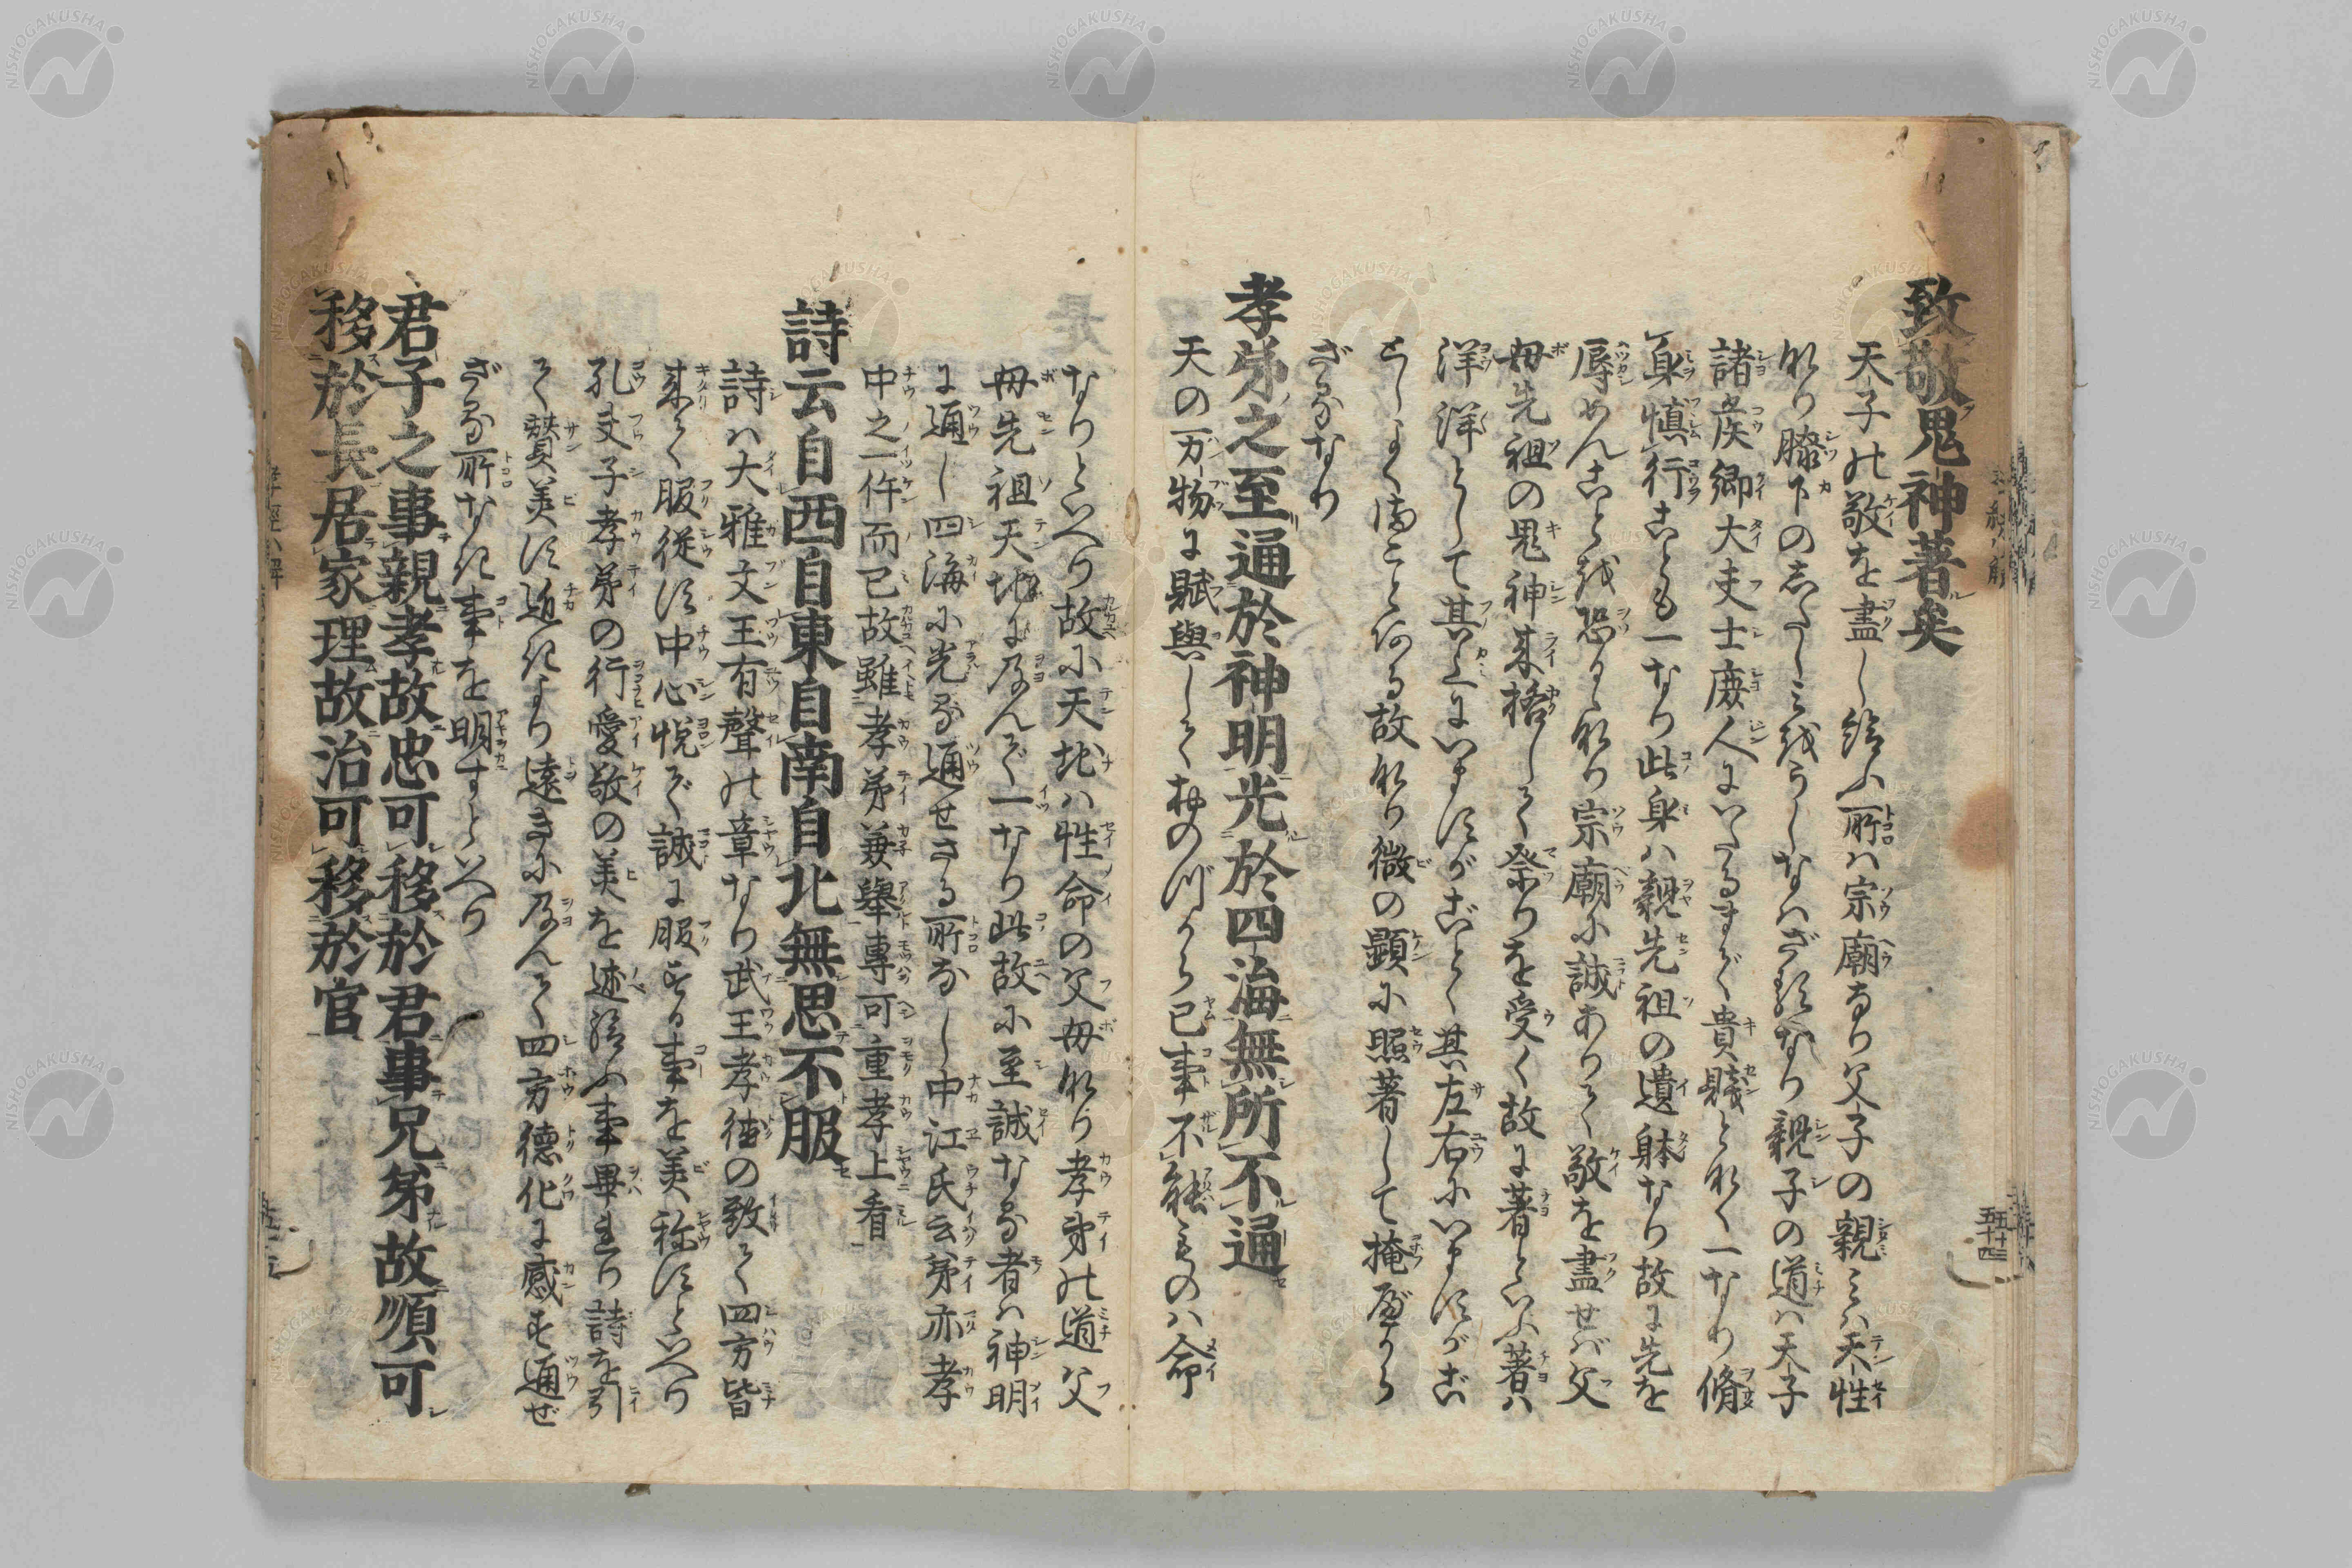 致敬鬼神著矣
天子の敬を盡し給ふ所は宗廟なり父子の親みハ天性
なり膝下のしたしみをうしなハざるなり親子の道ハ天子
諸侯卿大夫士庶人にいたるまで貴賤となく一なり脩
身慎行ことも一なり此身ハ親先祖の遺躰なり故に先を
辱めんことを恐るゝなり宗廟に誠ありて敬を盡せば父
母先祖の鬼神来格して祭りを受く故に著といふ著ハ
洋洋として其上にいますがごとく其左右にいますがご
としよく治ことある故なり微の顕に照著して掩べから
ざるなり
孝弟之至通於神明光於四海無所不通
天の万物に賦與してわのづから已事不能ものハ命
なりといへり故に天地ハ性命の父母なり孝弟の道父
母先祖天地に及んで一なり此故に至誠なる者ハ神明
に通し四海に光る通せさる所なし中江氏云弟亦孝
中之一件而已故雖孝弟兼舉專可重孝上看
詩云自西自東自南自北無思不服
詩ハ大雅文王有聲の章なり武王孝徳の致て四方皆
来て服従す中心悦で誠に服する事を美称すといへり
孔夫子孝弟の行愛敬の美を述給ふ事畢れり詩を引
て贊美す近きより遠きに及んて四方徳化に感ぜ通ぜ
ざる所なき事を明すといへり
君子之事親孝故忠可移於君事兄弟故順可
移於長居家理故治可移於官
五十三
五十四
NISHOGAKUSHA